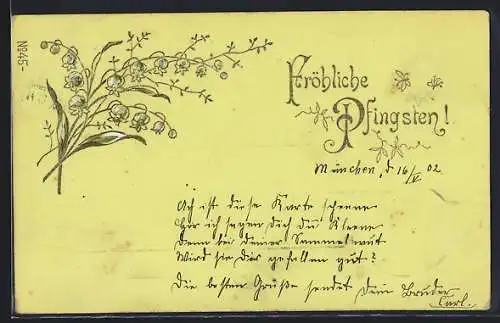 No 45-
Fröhliche
Pfingsten!
München, d 16/V 02
Ach ist diese Karte scheene
Hör ich sagen Dich du Kleene
Denn bei deiner Sammelwut
Wird sie Dir gefallen gut?
Die besten Grüße sendet Dein Bruder
Carl.